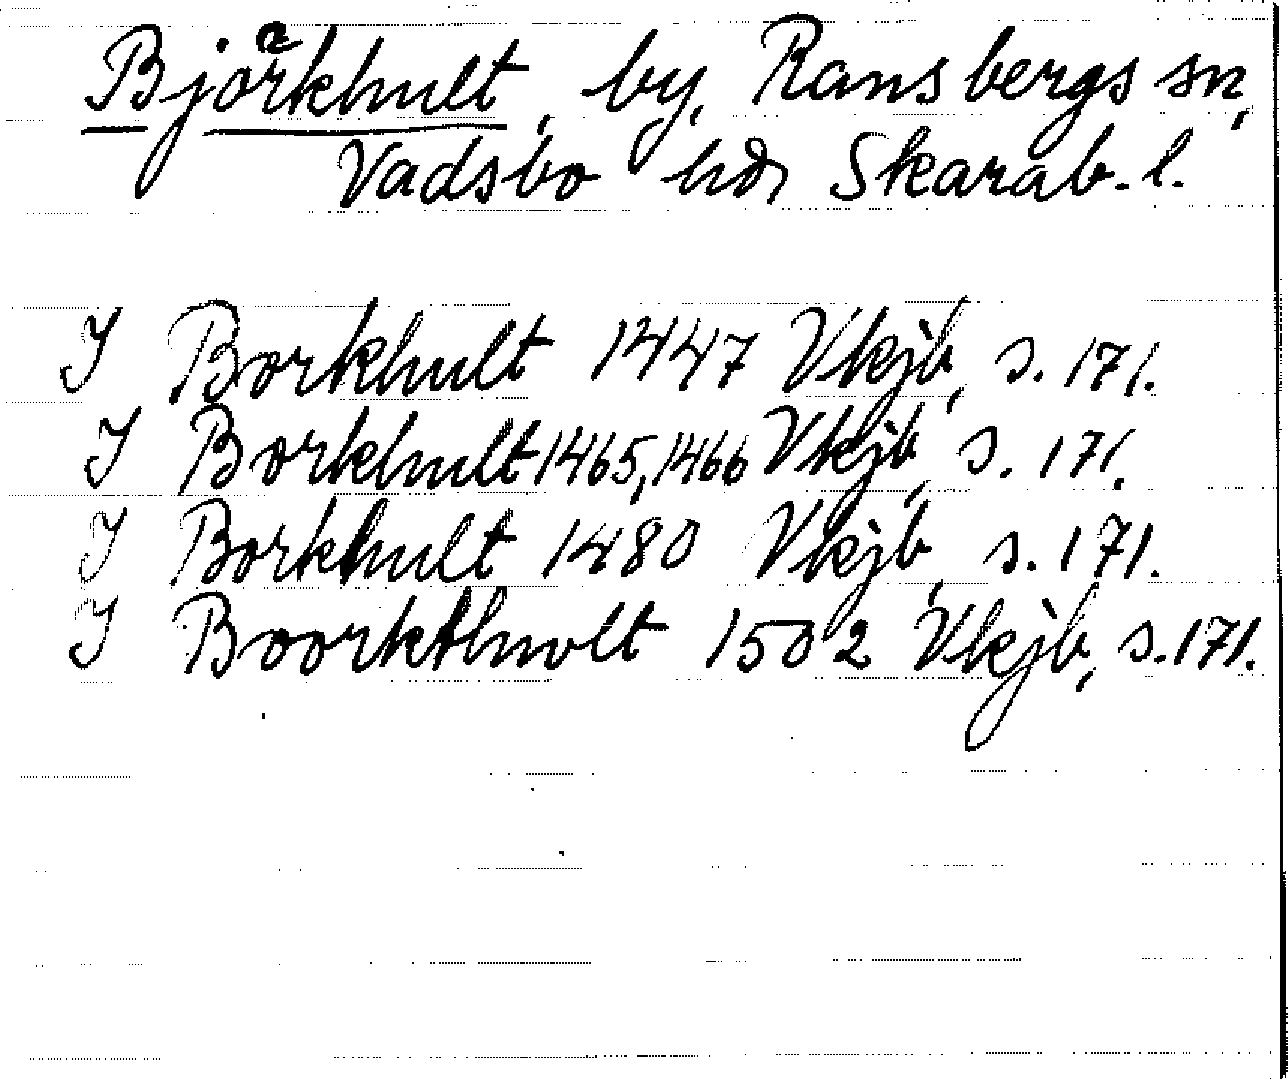 Björkhult, by, Ransbergs sn,
Vadsbo hd, Skarab. l.
I Borkhult 1447 Vkjb, s. 171.
I Borkhult 1465, 1466 Vkjb, s. 171.
I Borkhult 1480 Vkjb, s. 171.
I Boorkhwlt 1502 Vkjb, s. 171.